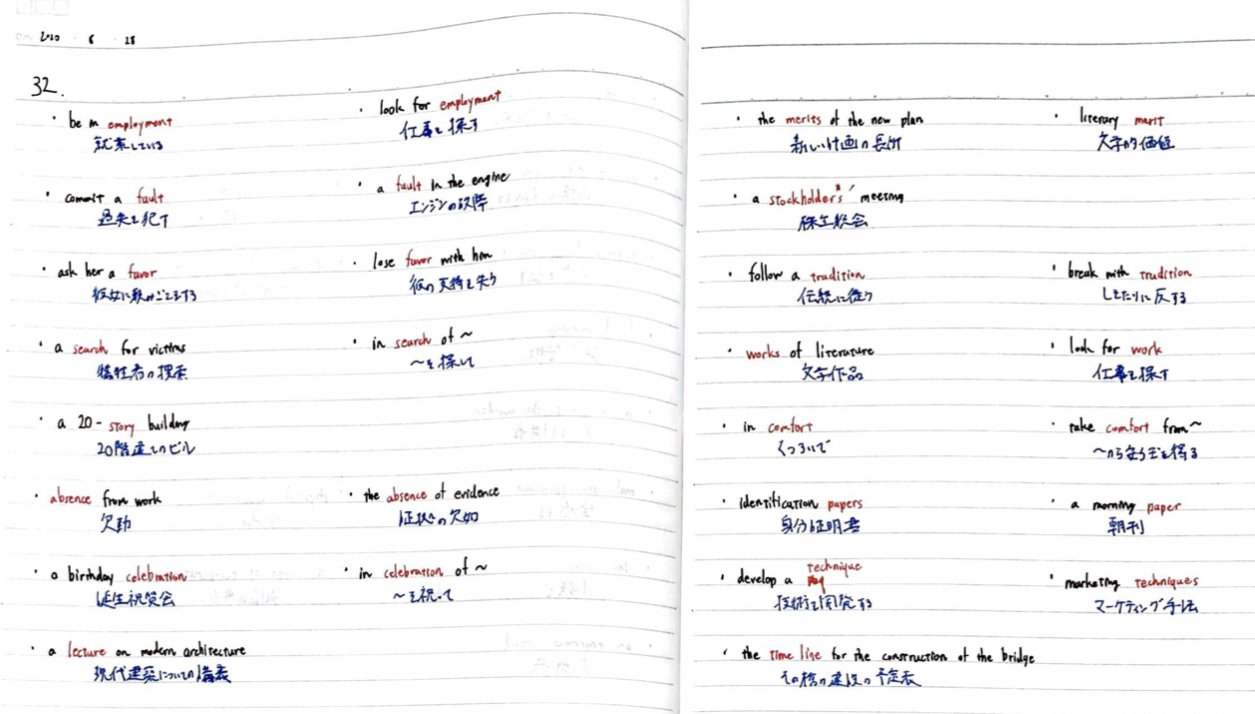 2020 6 28
32.
・ be in employment
就業している
・ look for employment
仕事を探す
・ commit a fault
過失を犯す
・ a fault in the engine
エンジンの故障
・ ask her a favor
彼女に頼みごとをする
・ lose favor with him
彼の支持を失う
・ a search for victims
犠牲者の捜索
・ in search of ～
～を探して
・ a 20-story building
20階建てのビル
・ absence from work
欠勤
・ the absence of evidence
証拠の欠如
・ a birthday celebration
誕生祝賀会
・ in celebration of ～
～を祝って
・ a lecture on modern architecture
現代建築についての講義
・ the merits of the new plan
新しい計画の長所
・ literary merit
文学的価値
・ a stockholders' meeting
株主総会
・ follow a tradition
伝統に従う
・ break with tradition
しきたりに反する
・ works of literature
文学作品
・ look for work
仕事を探す
・ in comfort
くつろいで
・ take comfort from ～
～から安らぎを得る
・ identification papers
身分証明書
・ a morning paper
朝刊
・ develop a technique
技術を開発する
・ marketing techniques
マーケティング手法
・ the time line for the construction of the bridge
その橋の建設の予定表